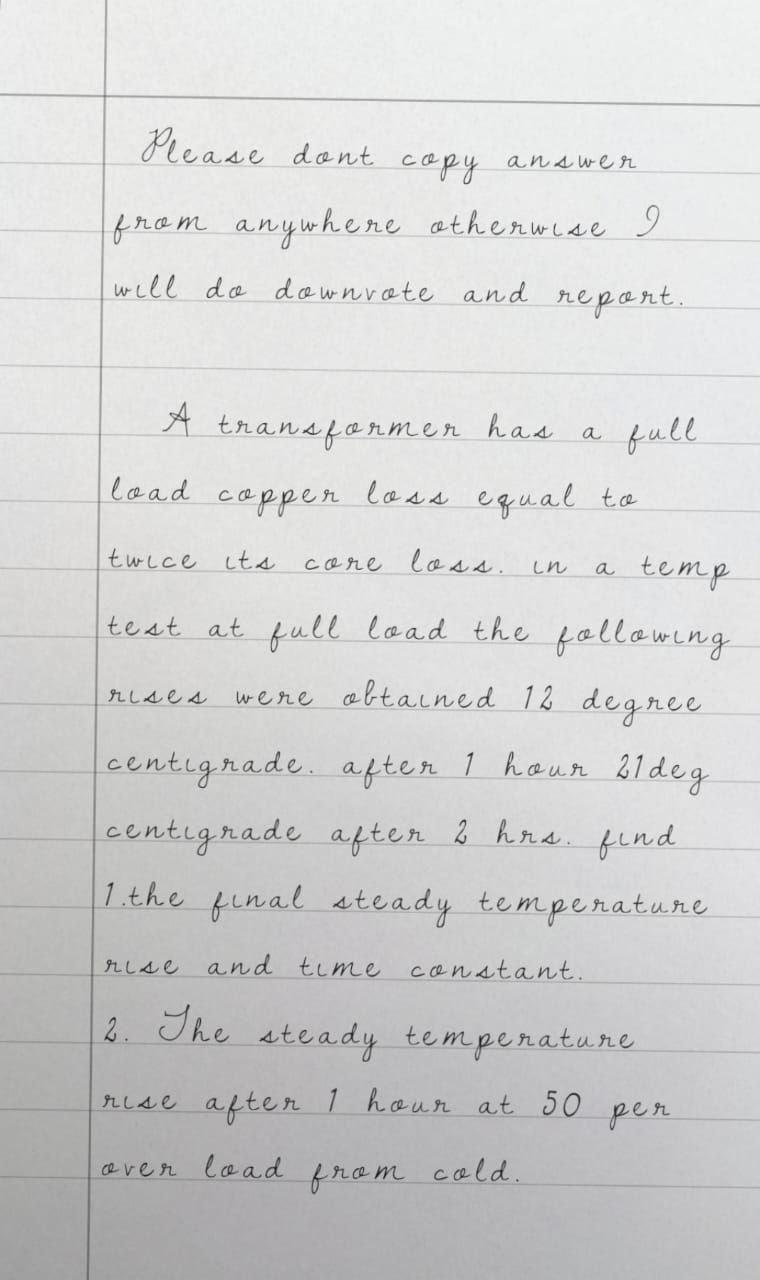 Please dont copy answer
from anywhere otherwise I
will do downvote and report.
A transformer has a full
load copper loss equal to
twice its core loss. in a temp
test at full load the following
rises were obtained 12 degree
centigrade. after 1 hour 21deg
centigrade after 2 hrs. find
1.the final steady temperature
rise and time constant.
2. The steady temperature
rise after 1 hour at 50 per
over load from cold.